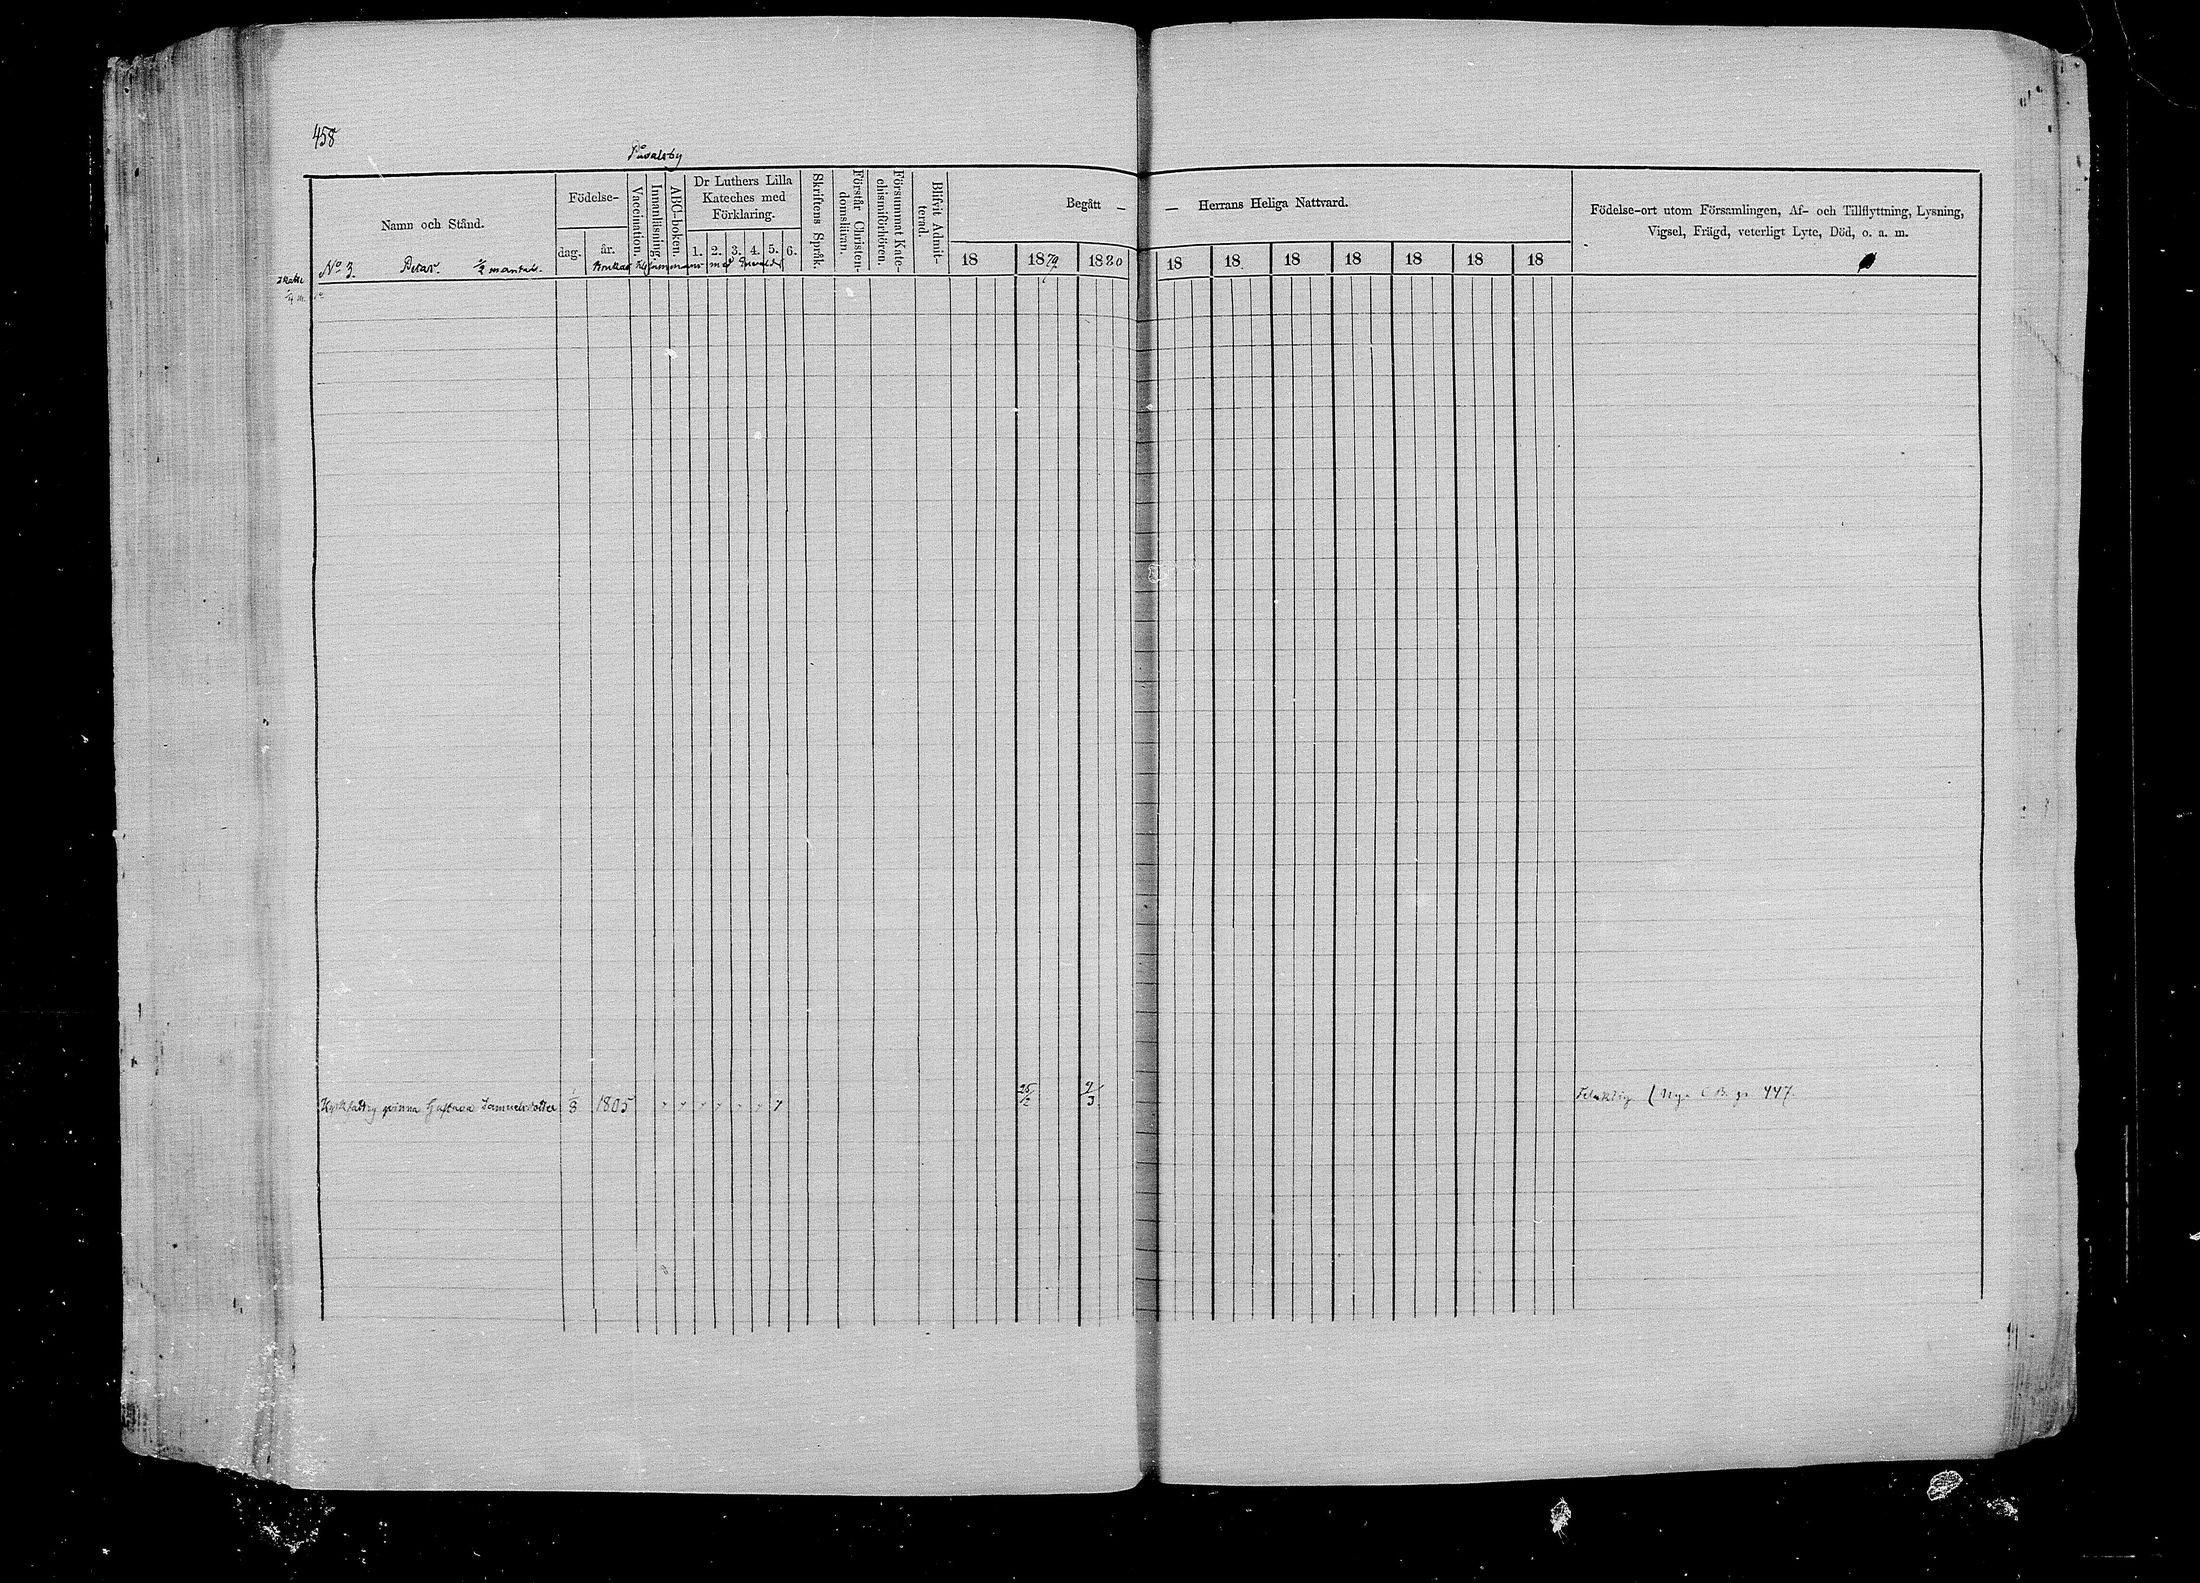 458
Påvalsby
Namn och Stånd.
Födelse-
dag.
år.
Vaccination.
Innanläsning.
ABC-boken.
Dr Luthers Lilla
Kateches med
Förklaring.
1. 2. 3. 4. 5. 6.
Skriftens Språk.
Förstår Christen-
domsläran.
Försummat Kate-
chismiförhören.
Blifvit Admit-
terad.
Begått — — Herrans Heliga Nattvard.
18 1879 1880 18 18 18 18 18 18 18
Födelse-ort utom Församlingen, Af- och Tillflyttning, Lysning,
Vigsel, Frägd, veterligt Lyte, Död, o. a. m.
No 3. 1/2 mantal. Brukas tillsammans med
Skatte
qvinna Gustava Samuelsdotter 1/8 1805 25/2 9/3 Nya C. B. p. 447.